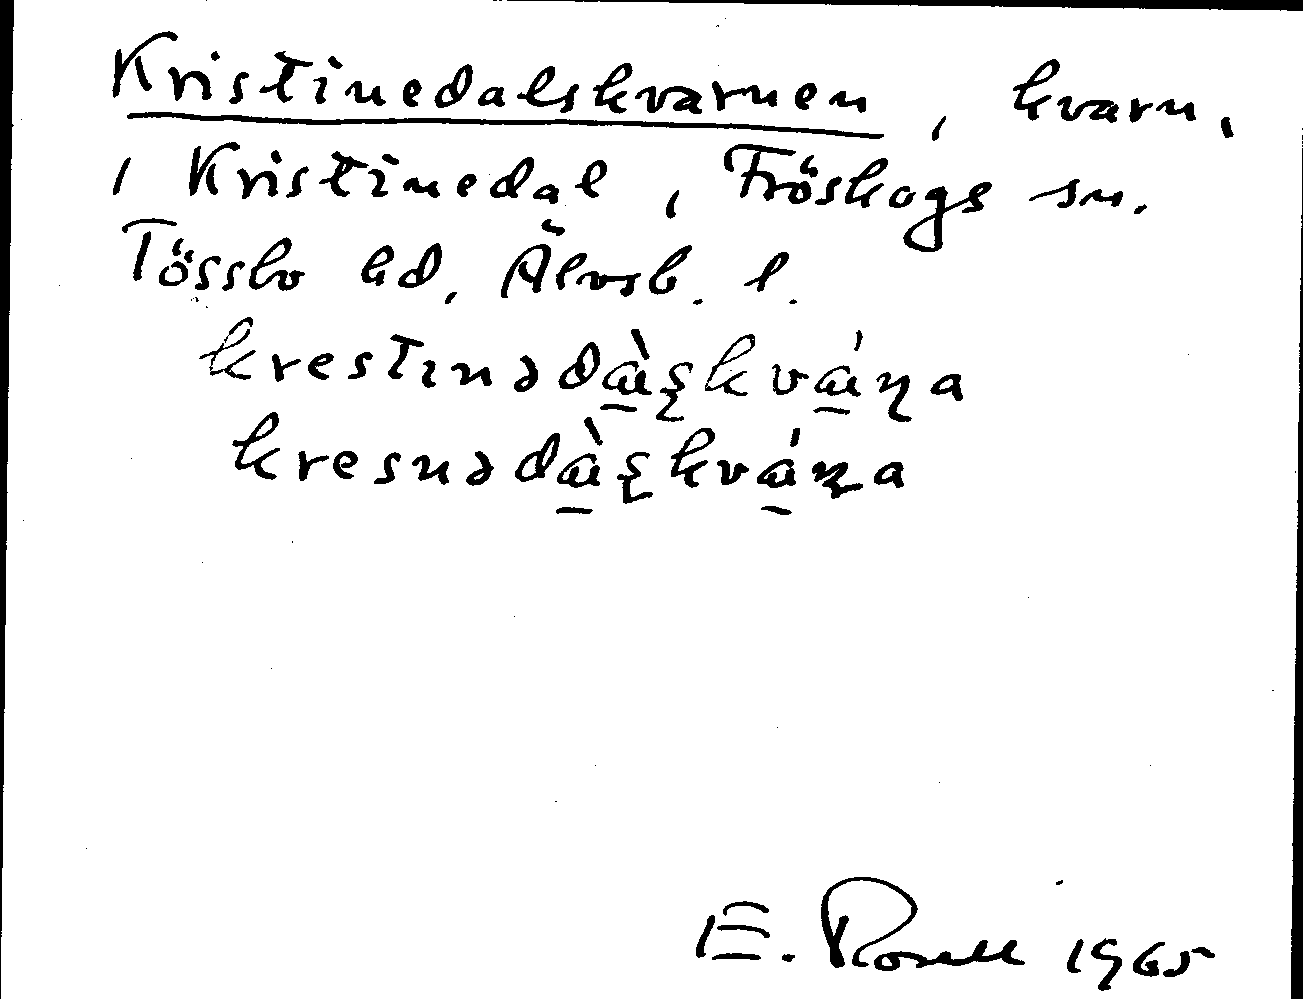 Kristinedalskvarnen, kvarn,
i Kristinedal, Fröskogs sn.
Tössbo hd, Älvsb. l.
krestinədàʂkváɳa
kresnədàʂkváɳa
E. Rosell 1965